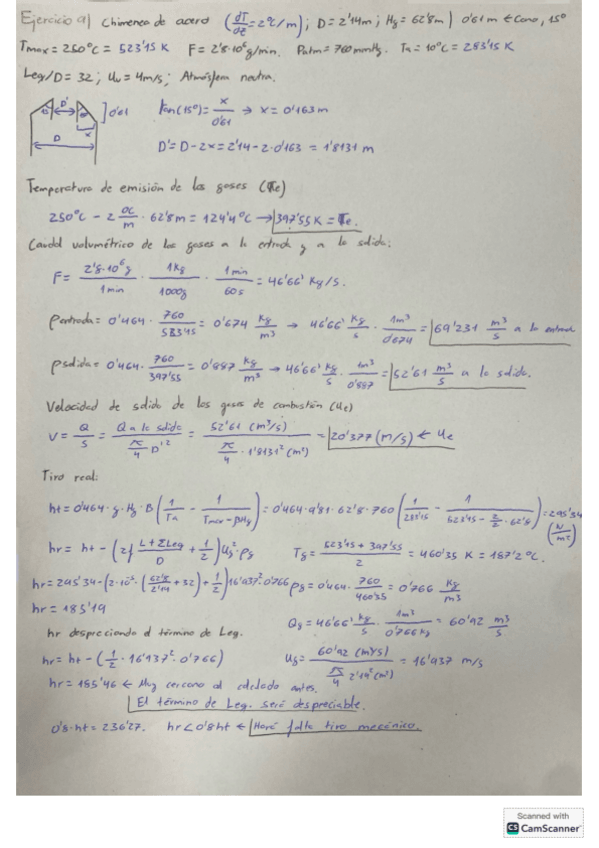 Ejercicio 9) Chimenea de acero (dT/dz = 2ºC/m); D = 2'14m; Hg = 62'8m | 0'61m ← Cono, 15º
Tmax = 250ºC = 523'15 K F = 2'8·10⁶ g/min. Patm = 760mmHg. Ta = 10ºC = 283'15 K
Leg/D = 32; Uv = 4m/s; Atmósfera neutra.
D' 0'61 x D
tan(15º) = x/0'61 → x = 0'163 m
D' = D - 2x = 2'14 - 2·0'163 = 1'8131 m
Temperatura de emisión de los gases (Te)
250ºC - 2 ºC/m · 62'8m = 124'4ºC → 397'55 K = Te.
Caudal volumétrico de los gases a la entrada y a la salida:
F = 2'8·10⁶ g/1 min · 1Kg/1000g · 1 min/60s = 46'66' Kg/s.
ρentrada = 0'464 · 760/583'45 = 0'674 Kg/m³ → 46'66' Kg/s · 1m³/0'674 = 69'231 m³/s a la entrada
ρsalida = 0'464 · 760/397'55 = 0'887 Kg/m³ → 46'66' Kg/s · 1m³/0'887 = 52'61 m³/s a la salida.
Velocidad de salida de los gases de combustión (Ue)
V = Q/S = Q a la salida/(π/4 D'²) = 52'61 (m³/s)/(π/4 · 1'8131² (m²)) = 20'377 (m/s) ← Ue
Tiro real:
ht = 0'464 · g · Hg · B (1/Ta - 1/(Tmax - βHg)) = 0'464 · 9'81 · 62'8 · 760 (1/283'15 - 1/(523'15 - 2/2 · 62'8)) = 295'34 (N/m²)
hr = ht - (2f (L + ΣLeg)/D + 1/2) Ug² · ρg Tg = (523'15 + 397'55)/2 = 460'35 K = 187'2ºC.
hr = 295'34 - (2·10⁻³ · (62'8/2'14 + 32) + 1/2) 16'937² · 0'766 ρg = 0'464 · 760/460'35 = 0'766 Kg/m³
hr = 185'19 Qg = 46'66' Kg/s · 1m³/0'766 Kg = 60'92 m³/s
hr despreciando el término de Leg.
hr = ht - (1/2 · 16'937² · 0'766) Ug = 60'92 (m³/s)/(π/4 2'14² (m²)) = 16'937 m/s
hr = 185'46 ← Muy cercano al calculado antes.
El término de Leg. será despreciable.
0'8·ht = 236'27. hr < 0'8ht ← Hará falta tiro mecánico.
Scanned with
CS CamScanner